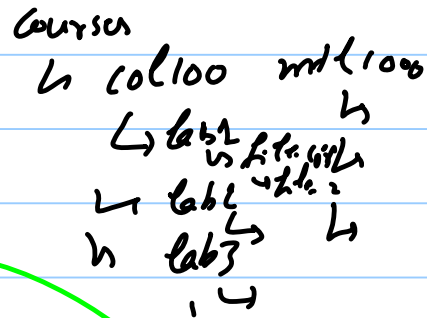 Courses
↳ col100 mtl1000
↳ lab1
↳ file
↳ file 2
lab2
↳ lab3